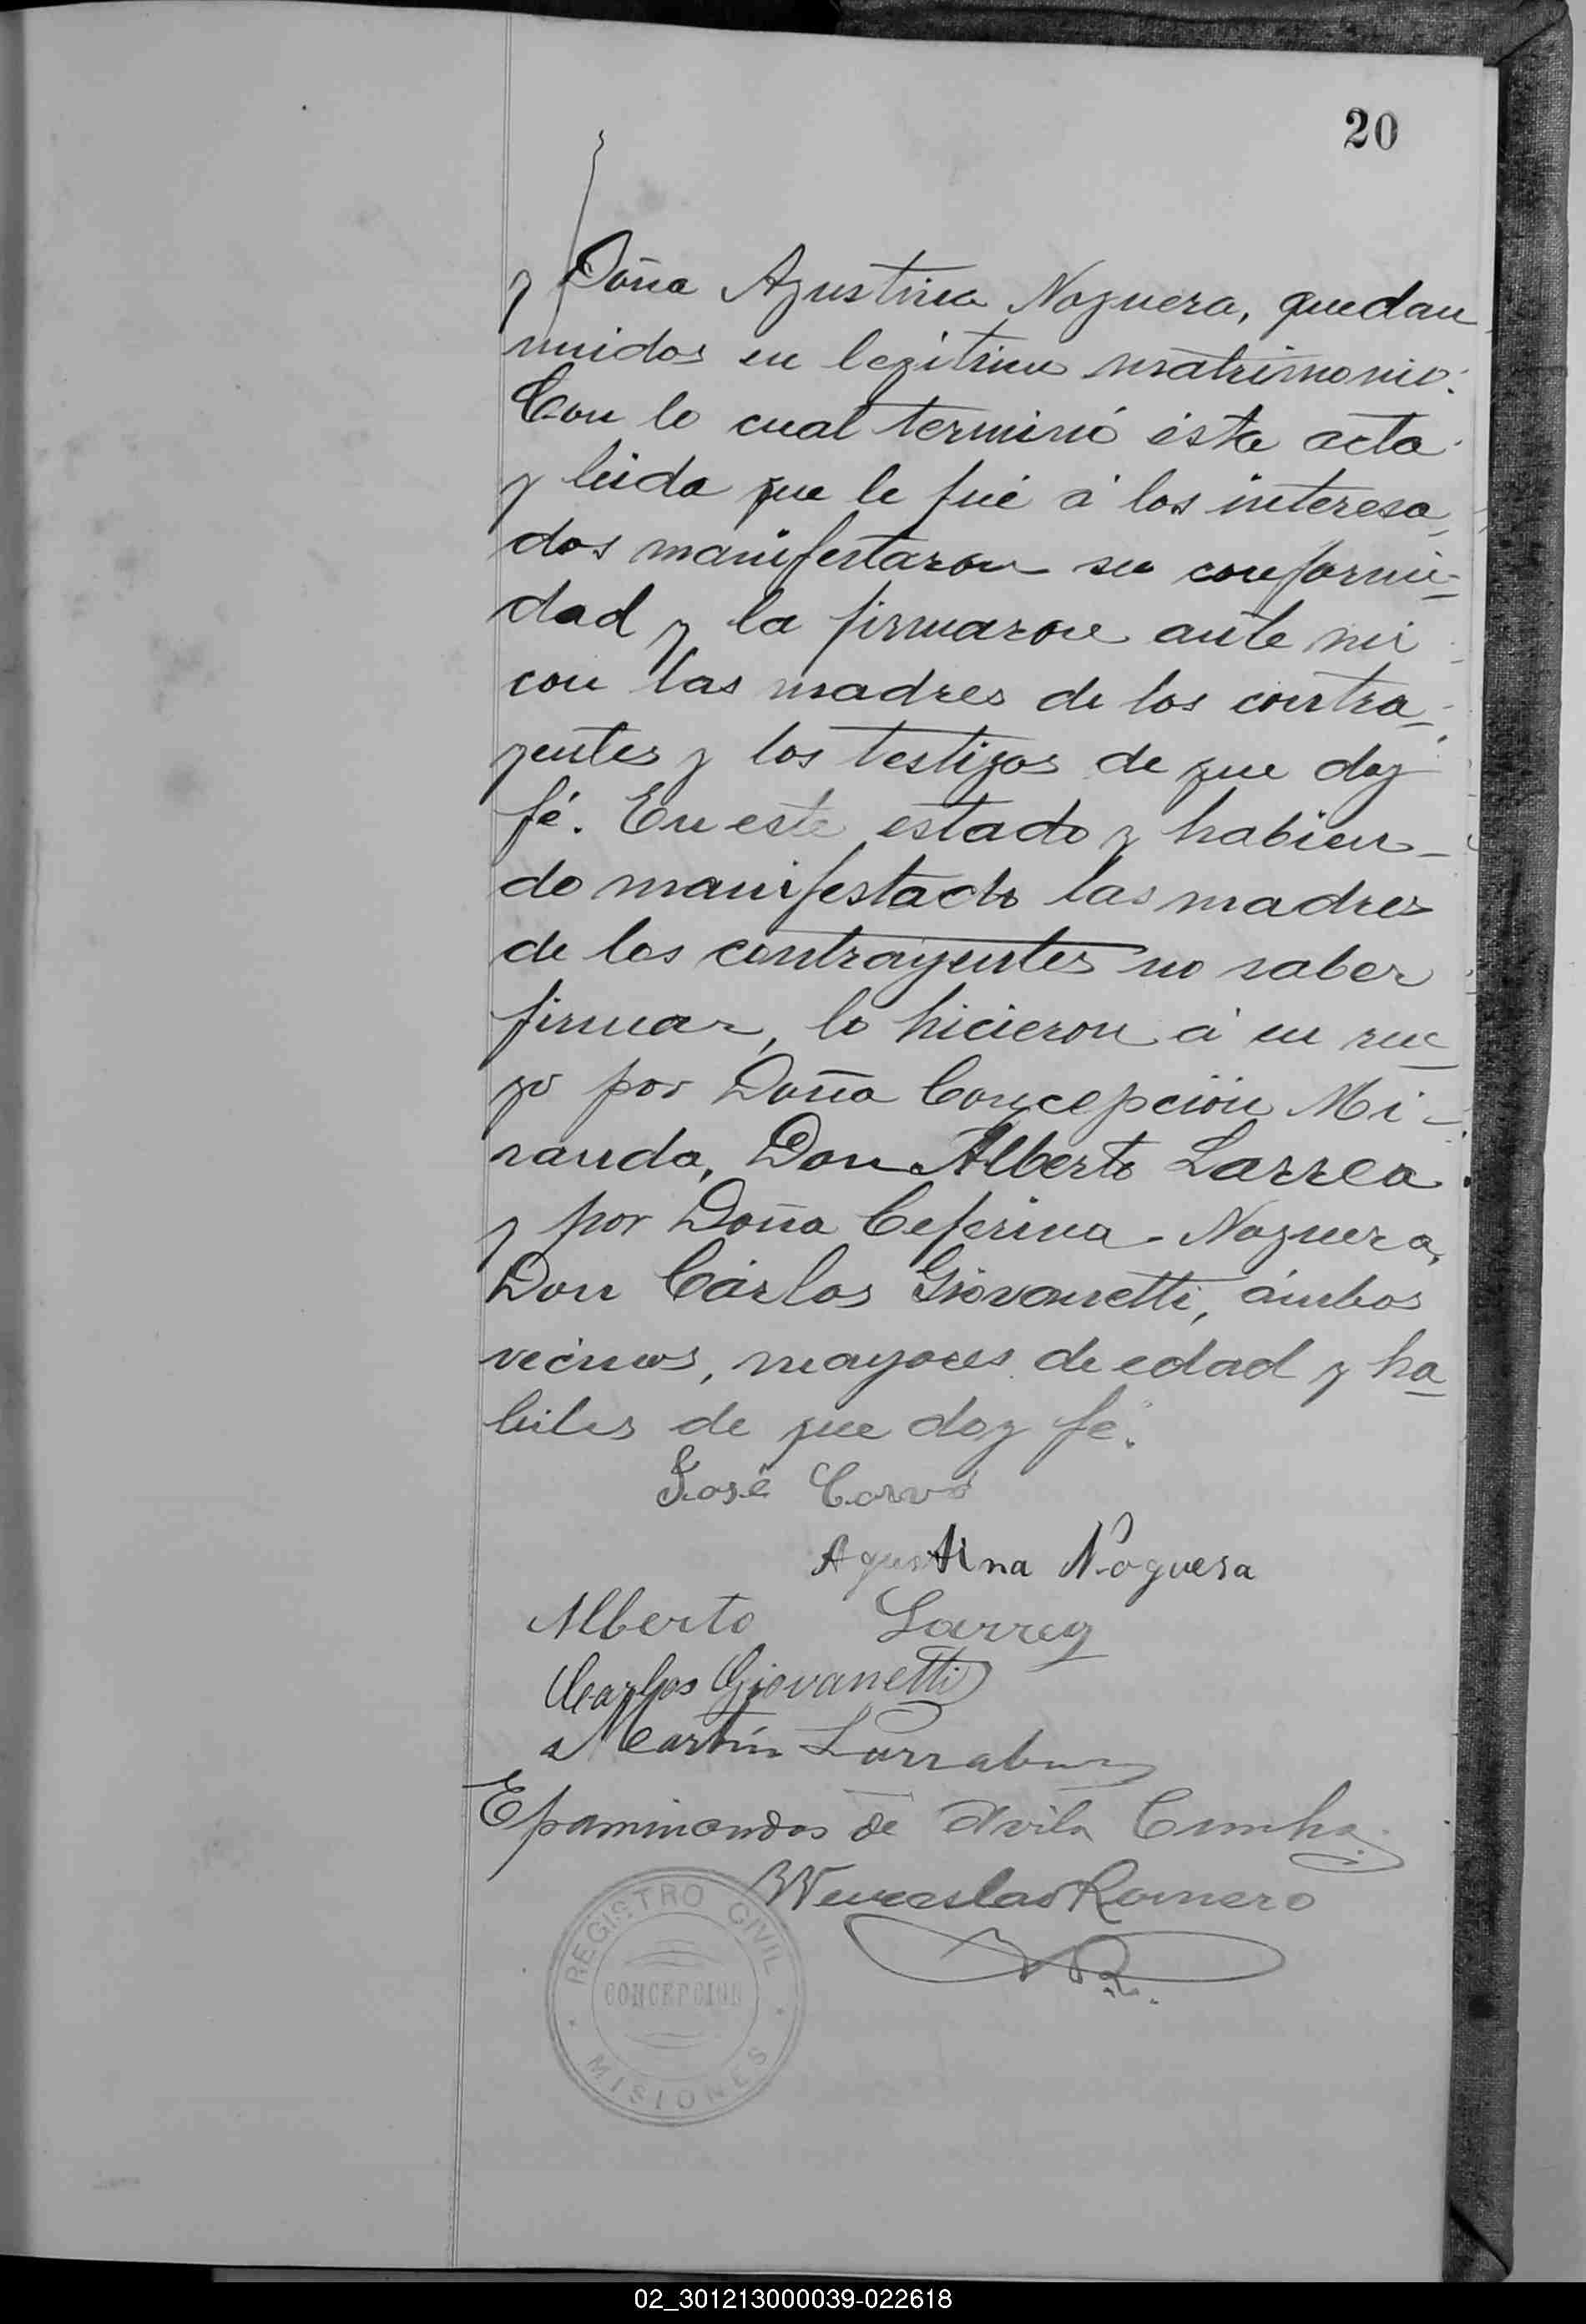 20
y Doña Agustina Noguera, quedan
unidos en legitimo matrimonio.
Con lo cual terminó ésta acta
y leida que le fué á los interesa-
dos manifestaron su conformi-
dad y la firmaron ante mi
con las madres de los contra-
yentes y los testigos de que doy
fé. En este estado y habien-
do manifestado las madres
de los contrayentes no saber
firmar, lo hicieron á su rue-
go por Doña Concepción Mi-
randa, Don Alberto Larrea
y por Doña Ceferina Noguera,
Don Cárlos Giovanetti, ámbos
vecinos, mayores de edad y ha-
biles de que doy fé.
José
Agustina Noguera
Alberto Larrea
Carlos Giovanetti
Martín
Epaminondas de Avila Cunha
Wenceslao Romero
WR.
REGISTRO CIVIL
CONCEPCION
MISIONES
02_301213000039-022618